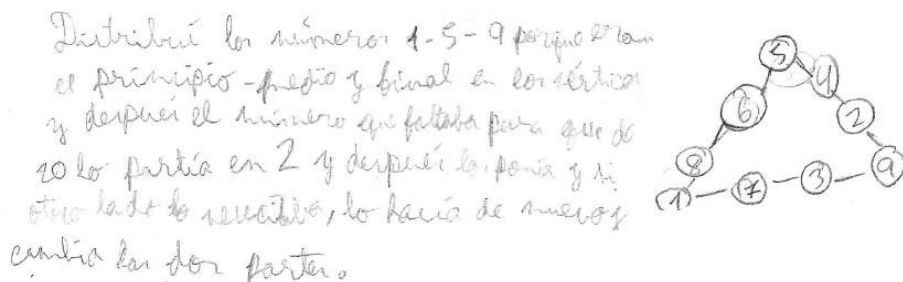 Distribuí los números 1-5-9 porque eran
el principio - medio y final en los vértices
y después el número que faltaba para que de
20 lo partía en 2 y después lo ponía y si
otro lado lo necesitaba, lo hacía de nuevo y
cambia las dos partes.
5
4
6
2
8
9
1
7
3